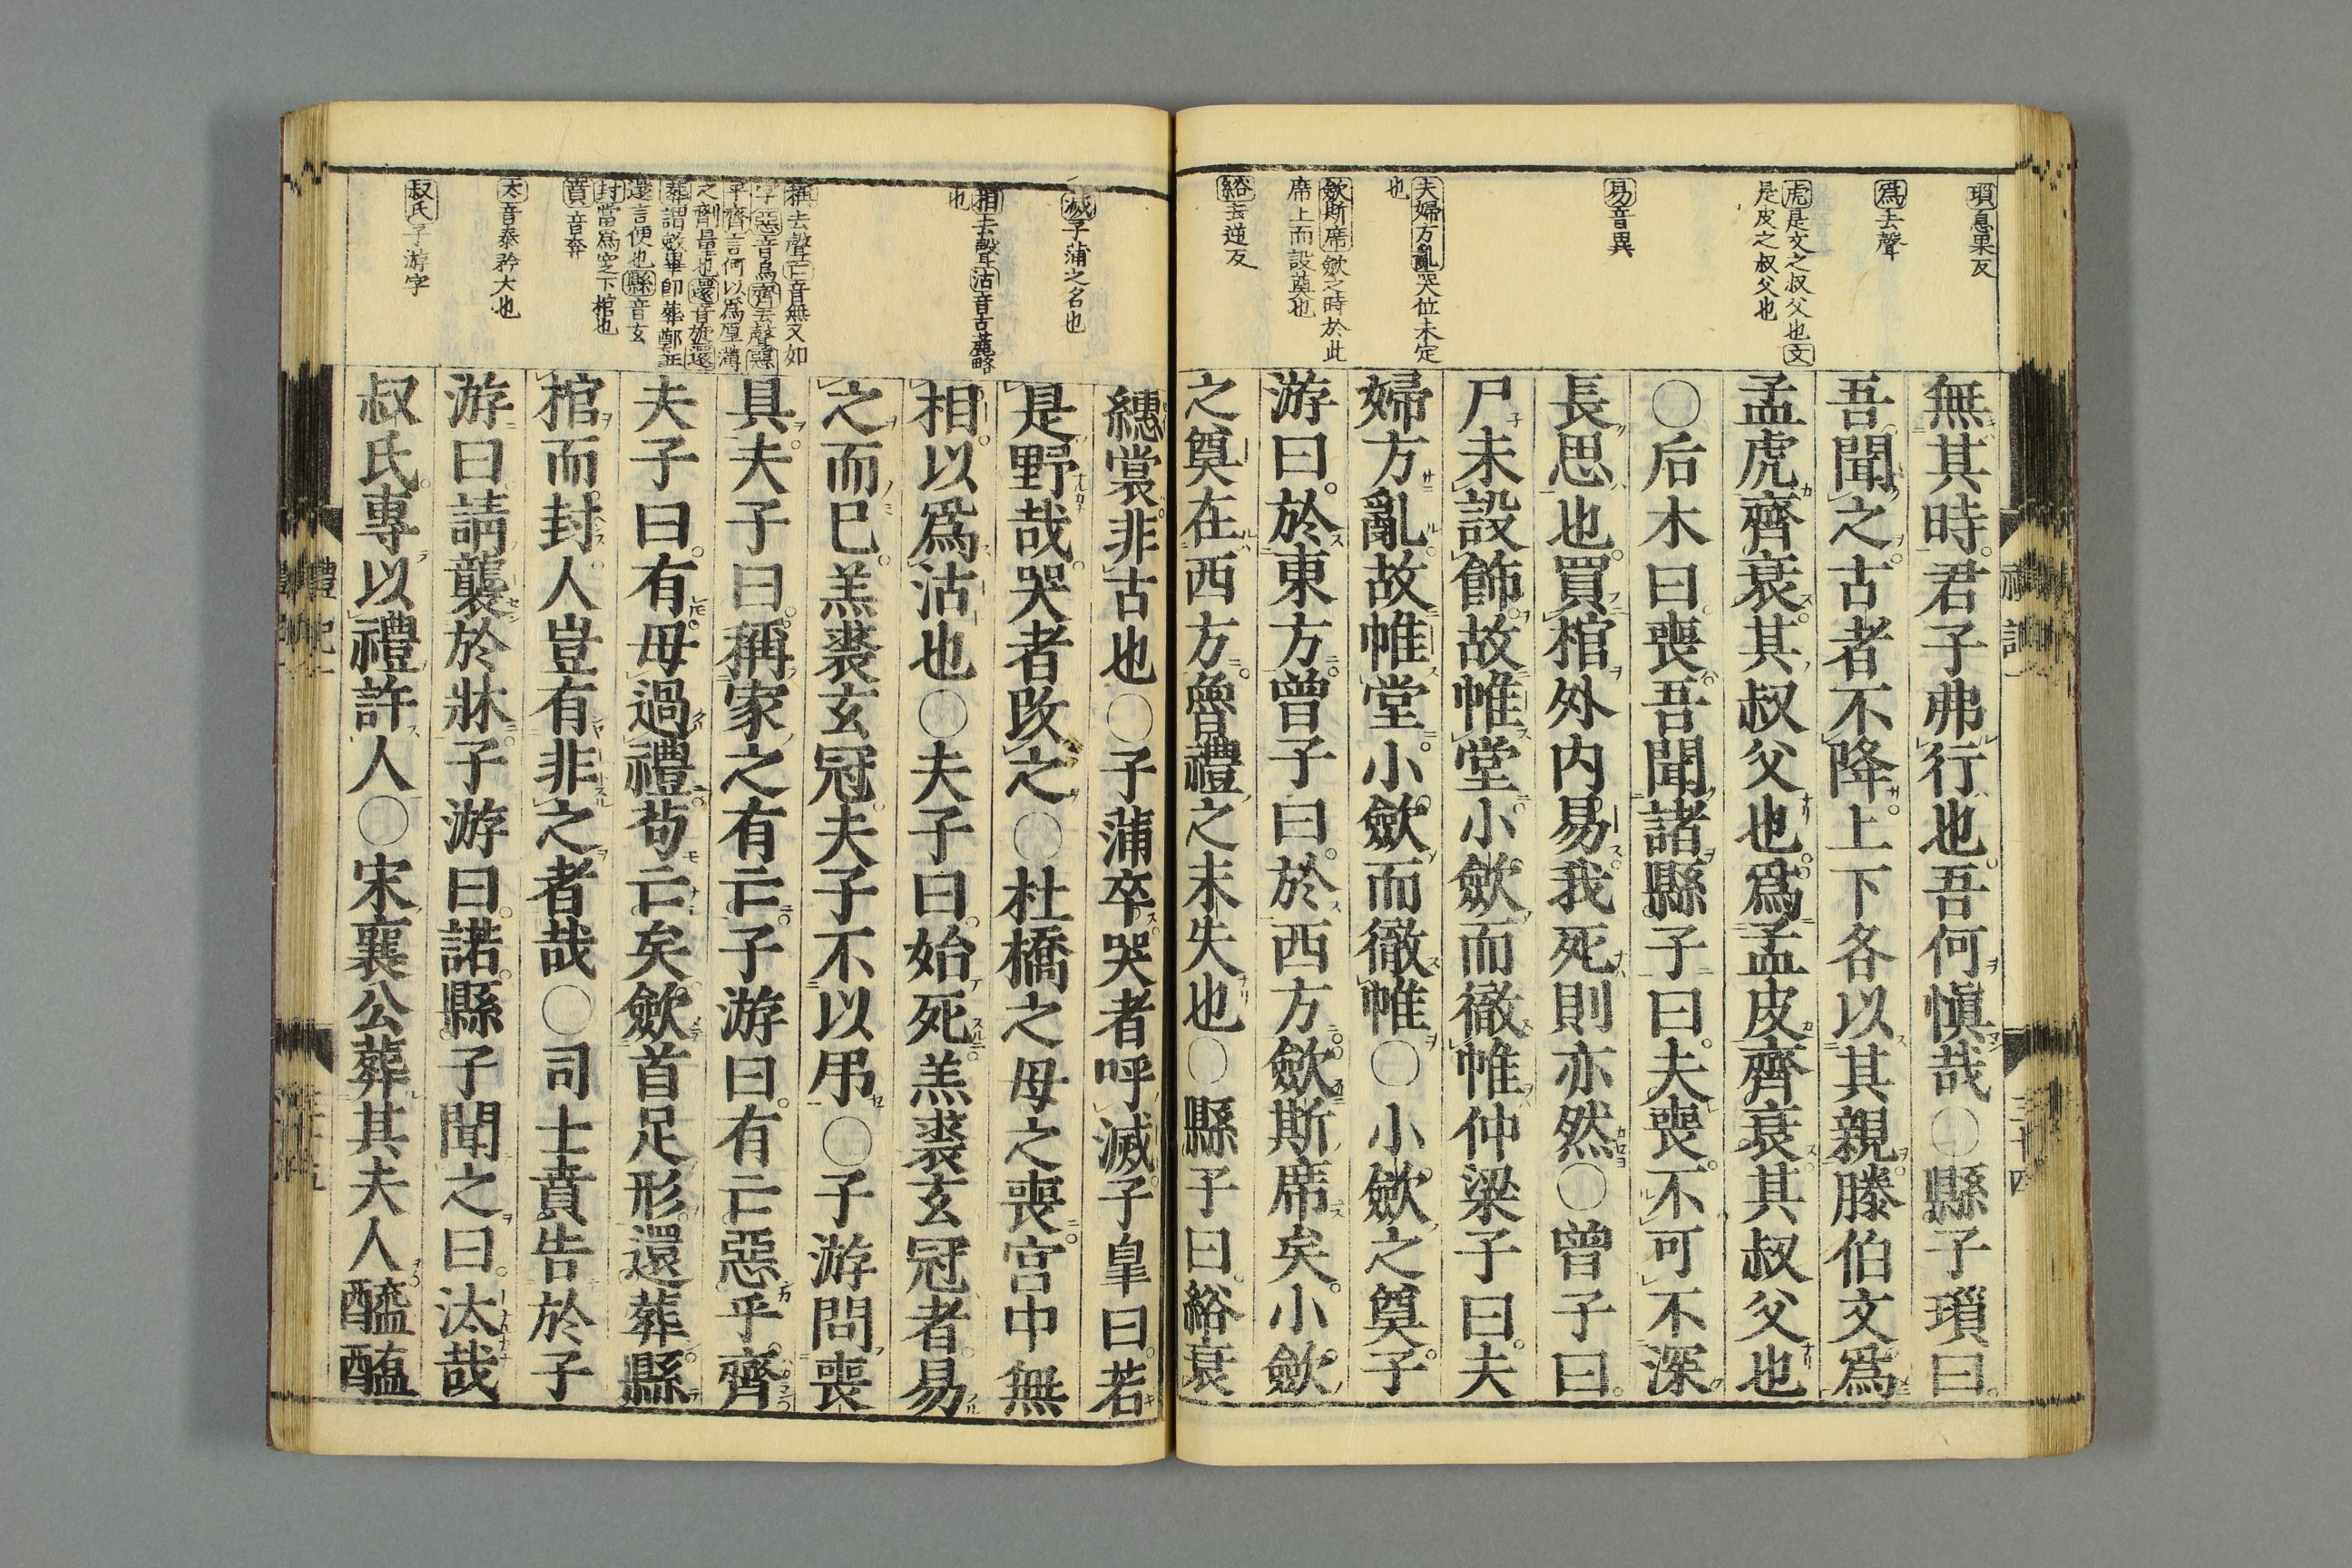 瑣息果反
爲去聲
虎是文之叔父也文
是皮之叔父也
易音異
夫婦方亂哭位未定
也
斂斯席斂之時於此
席上而設奠也
綌去逆反
無其時君子弗行也吾何愼哉○縣子瑣曰
吾聞之古者不降上下各以其親滕伯文爲
孟虎齊衰其叔父也爲孟皮齊衰其叔父也
○后木曰喪吾聞諸縣子曰夫喪不可不深
長思也買棺外内易我死則亦然○曾子曰
尸未設飾故帷堂小斂而徹帷仲梁子曰夫
婦方亂故帷堂小斂而徹帷○小斂之奠子
游曰於東方曾子曰於西方斂斯席矣小斂
之奠在西方魯禮之末失也○縣子曰綌衰
三十四
滅子蒲之名也
相去聲沽音古麄略
也
稱去聲亡音無又如
字惡音烏齊去聲還
平齊言何以爲厚薄
之劑量也還音旋還
葬謂斂畢即葬鄭註
還言便也縣音玄
封當爲窆下棺也
賁音奔
汰音泰矜大也
叔氏子游字
繐裳非古也○子蒲卒哭者呼滅子皐曰若
是野哉哭者改之○杜橋之母之喪宮中無
相以爲沽也○夫子曰始死羔裘玄冠者易
之而已羔裘玄冠夫子不以弔○子游問喪
具夫子曰稱家之有亡子游曰有亡惡乎齊
夫子曰有毋過禮苟亡矣斂首足形還葬縣
棺而封人豈有非之者哉○司士賁告於子
游曰請襲於牀子游曰諾縣子聞之曰汰哉
叔氏專以禮許人○宋襄公葬其夫人醯醢
禮記一